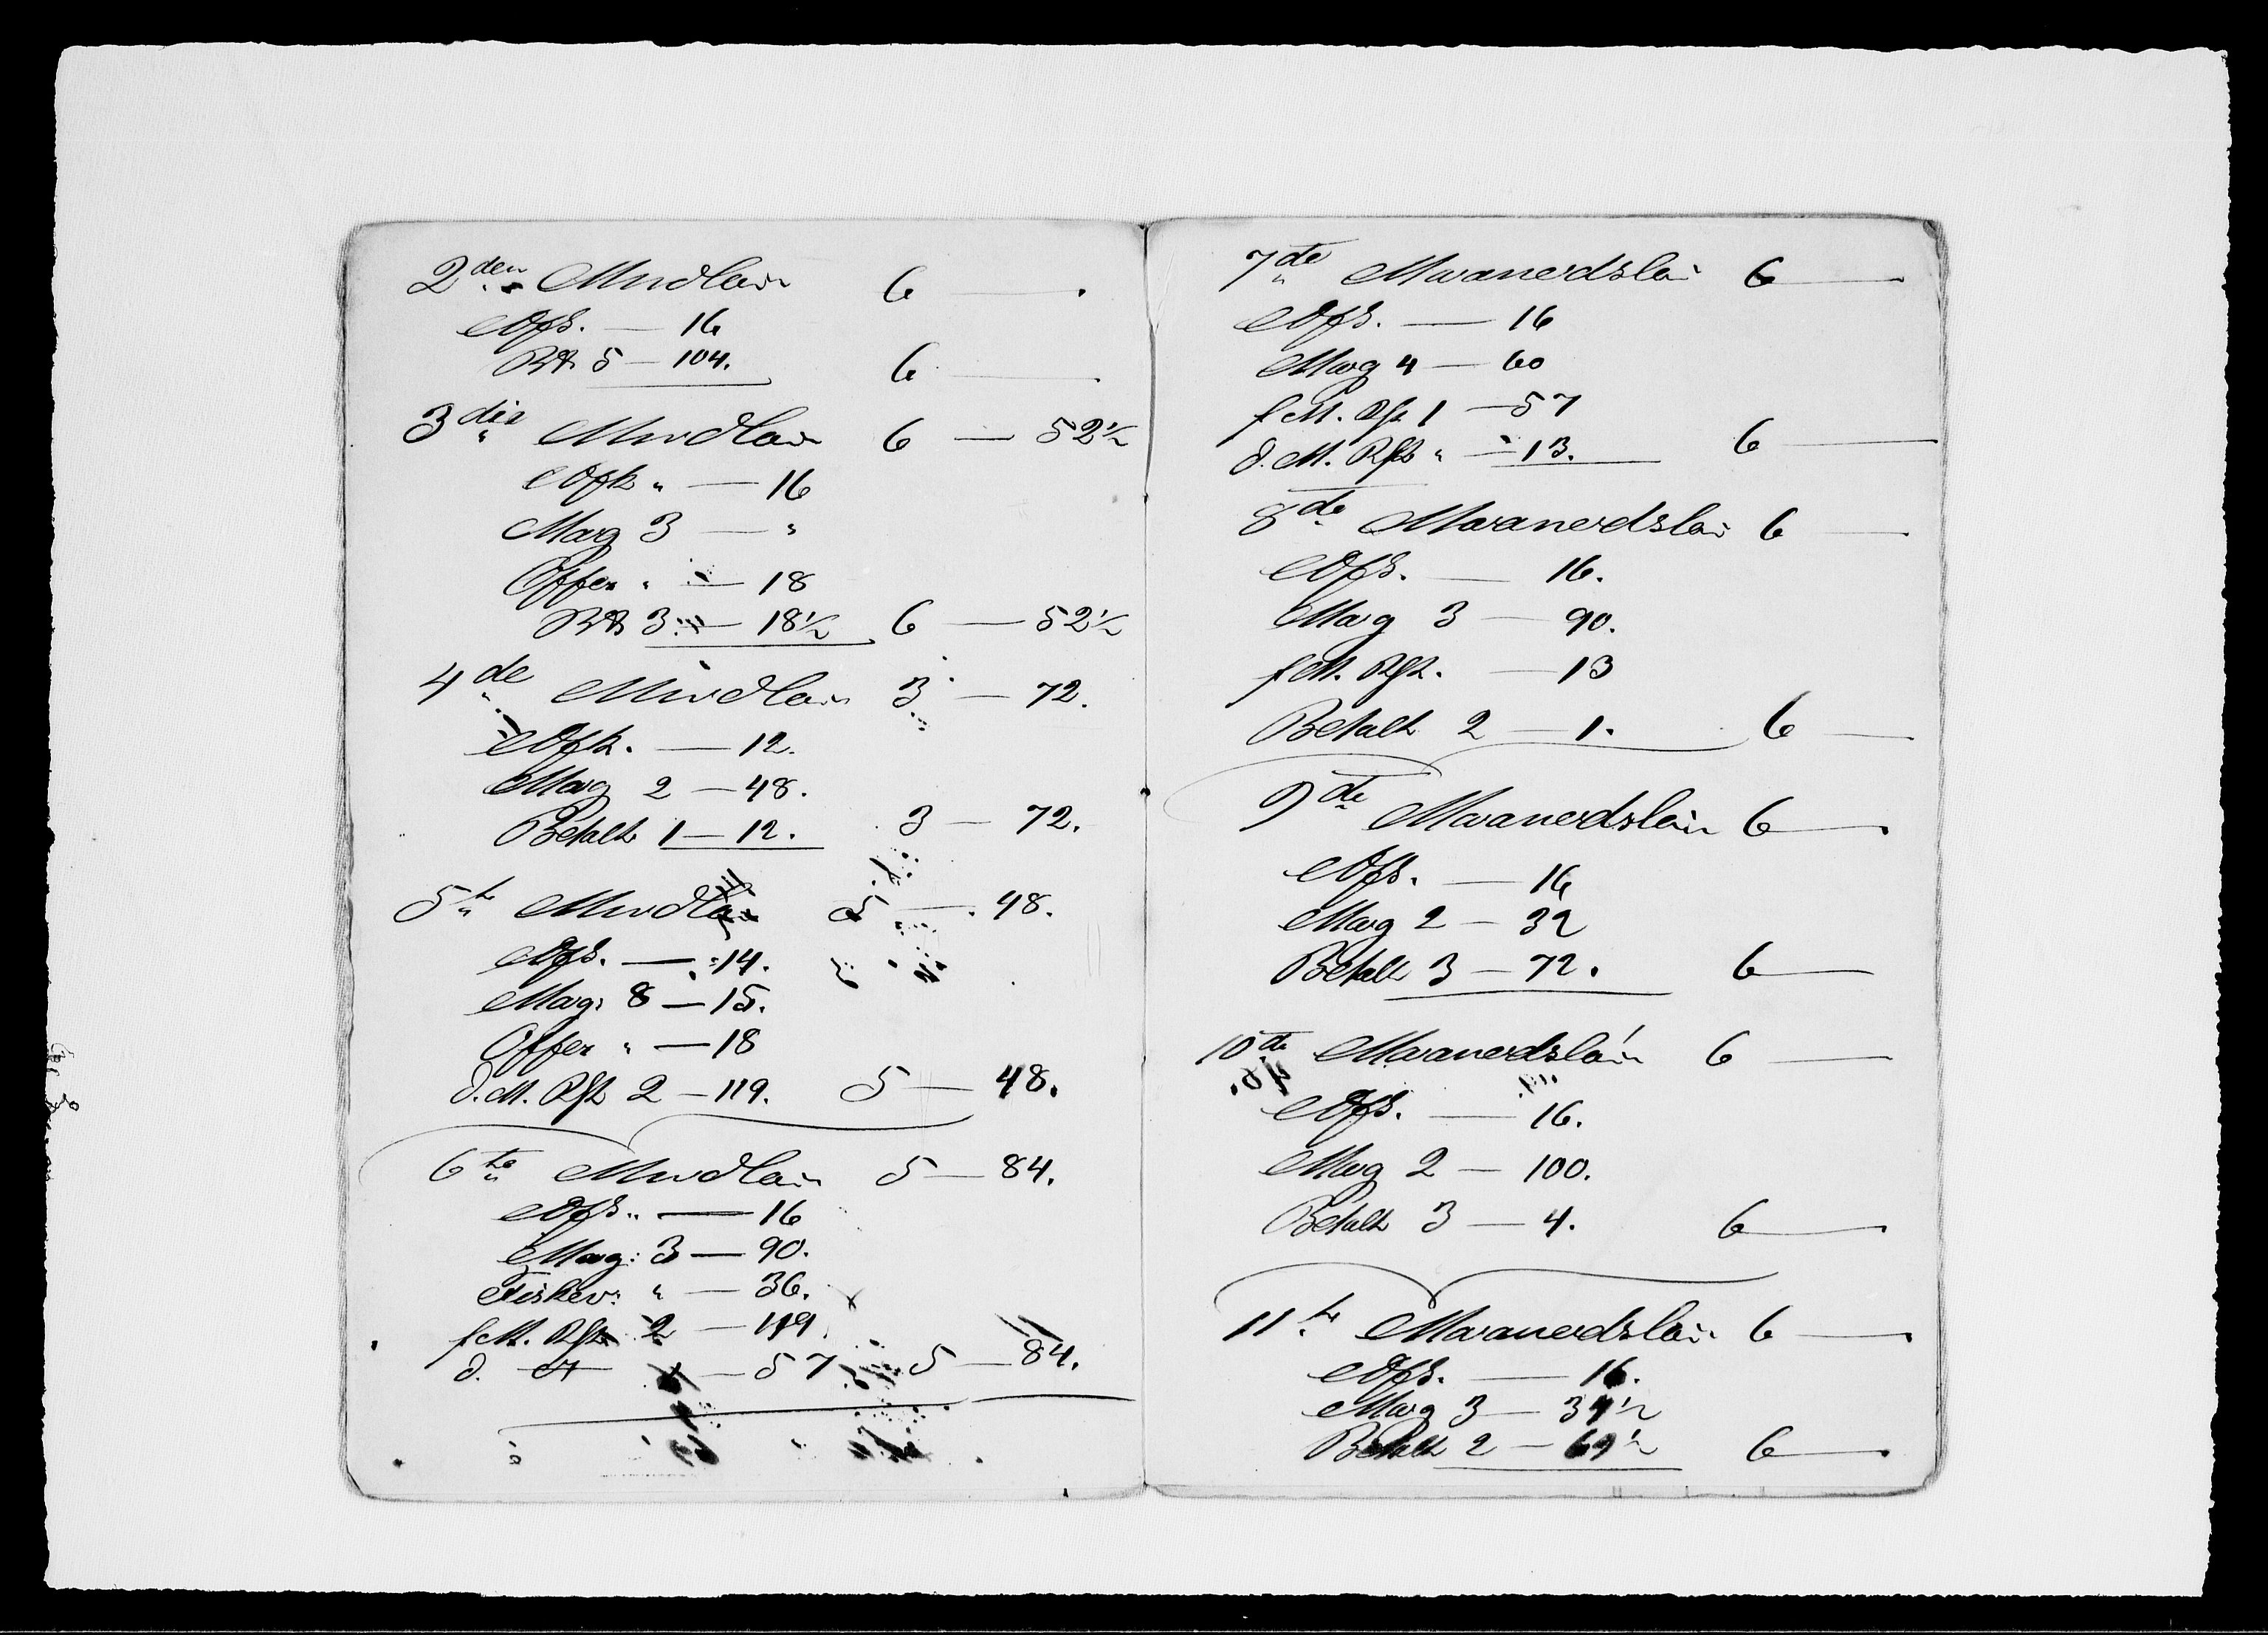 2den Mndlön 6 —
Ofs. — 16
Rt. 5 — 104. 6 —
3die Mndlön 6 — 52½
Ofs. " — 16
Mag 3 — "
Offer " — 18
Rt 3 — 18½ 6 — 52½
4de Mndlön 3 — 72.
Ofs. — 12.
Mag 2 — 48.
Betalt 1 — 12. 3 — 72.
5te Mndlön 5 — 48.
Ofs. — 14.
Mag: 8 — 15.
Offer " — 18
d. M. Rst 2 — 119. 5 — 48.
6te Mndlön 5 — 84.
Ofs. " — 16
Mag: 3 — 90.
Fiskev: " — 36.
f M. Rst 2 — 119.
d. — 57 5 — 84.
7de Maanedslön 6 —
Ofs. — 16
Mag 4 — 60
f M. Rst 1 — 57
d. M. Rst " — 13. 6 —
8de Maanedslön 6 —
Ofs. — 16.
Mag 3 — 90.
f M. Rst. — 13
Betalt 2 — 1. 6 —
9de Maanedslön 6 —
Ofs. — 16
Mag 2 — 32
Betalt 3 — 72. 6 —
10de Maanedslön 6 —
Ofs. — 16.
Mag 2 — 100.
Betalt 3 — 4. 6 —
11te Maanedslön 6 —
Ofs. — 16.
Mag 3 — 34½
Betalt 2 — 69½ 6 —